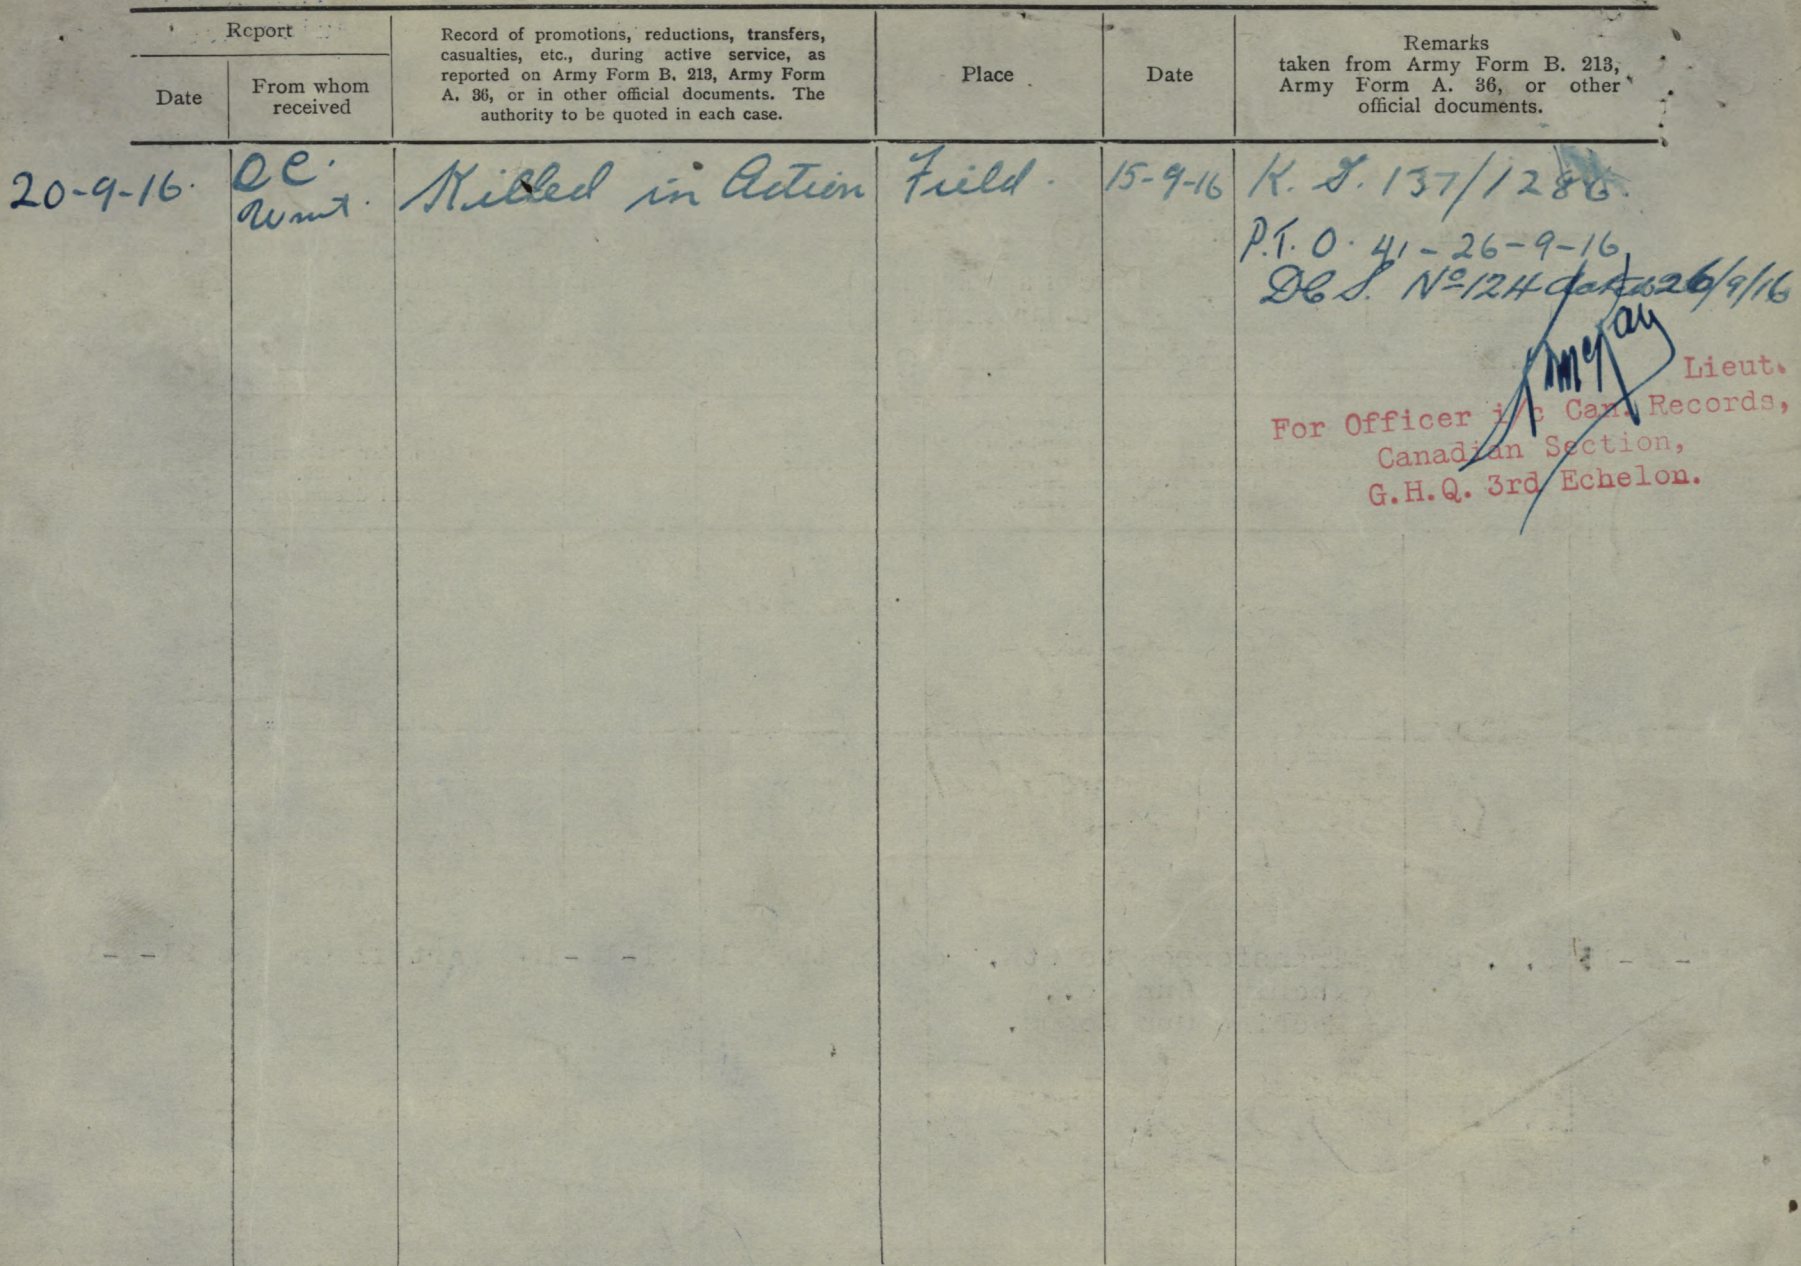 Report
Date
From whom
received
Record of promotions, reductions, transfers,
casualties, etc., during active service, as
reported on Army Form B. 213, Army Form
A. 36, or in other official documents. The
authority to be quoted in each case.
Place
Date
Remarks
taken from Army Form B. 213,
Army Form A. 36, or other
official documents.
20-9-16.
OC.
Unit.
Killed in Action
Field.
15-9-16
K. I. 137/1286.
P.T. O. 41-26-9-16
DCS. No 124 dated 26/9/16
Lieut.
For Officer i/c Can. Records,
Canadian Section,
G.H.Q. 3rd Echelon.